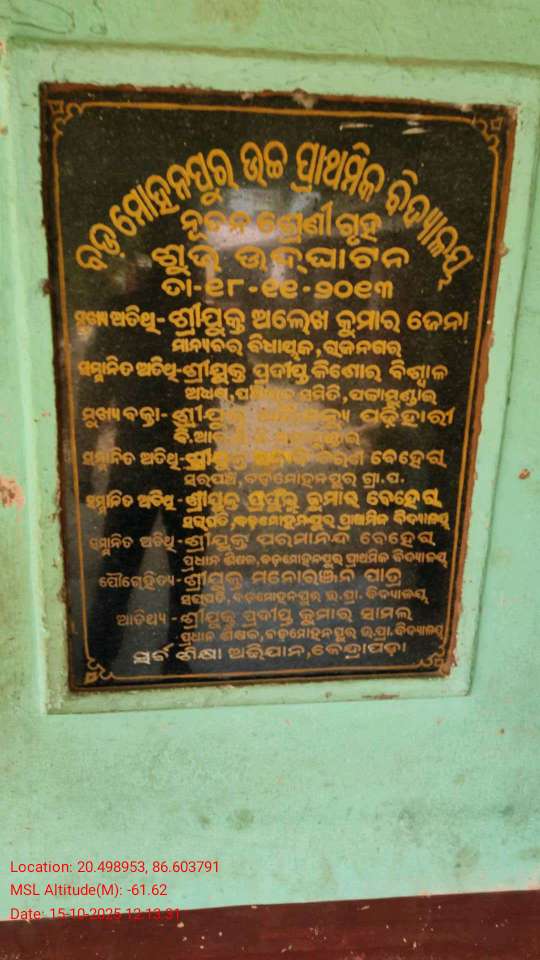 ବଡ଼ମୋହନପୁର ଉଚ୍ଚ ପ୍ରାଥମିକ ବିଦ୍ୟାଳୟ
ନୂତନ ଶ୍ରେଣୀ ଗୃହ
ଶୁଭ ଉଦ୍‌ଘାଟନ
ତା-୧୮-୧୧-୨୦୧୩
ମୁଖ୍ୟ ଅତିଥି-ଶ୍ରୀଯୁକ୍ତ ଅଲେଖ କୁମାର ଜେନା
ମାନ୍ୟବର ବିଧାୟକ,ରାଜନଗର
ସମ୍ମାନିତ ଅତିଥି-ଶ୍ରୀଯୁକ୍ତ ପ୍ରଦୀପ୍ତ କିଶୋର ବିଶ୍ୱାଳ
ଅଧ୍ୟକ୍ଷ,ପଞ୍ଚାୟତ ସମିତି,ପଟ୍ଟାମୁଣ୍ଡାଇ
ମୁଖ୍ୟ ବକ୍ତା-ଶ୍ରୀଯୁକ୍ତ ପଢ଼ିହାରୀ
ସମ୍ମାନିତ ଅତିଥି-ଶ୍ରୀଯୁକ୍ତ ବେହେରା
ସରପଞ୍ଚ,ବଡ଼ମୋହନପୁର ଗ୍ରା.ପ.
ସମ୍ମାନିତ ଅତିଥି-ଶ୍ରୀଯୁକ୍ତ ପ୍ରଫୁଲ୍ଲ କୁମାର ବେହେରା
ସଭାପତି,ବଡ଼ମୋହନପୁର ପ୍ରାଥମିକ ବିଦ୍ୟାଳୟ
ସମ୍ମାନିତ ଅତିଥି-ଶ୍ରୀଯୁକ୍ତ ପରମାନନ୍ଦ ବେହେରା
ପ୍ରଧାନ ଶିକ୍ଷକ,ବଡ଼ମୋହନପୁର ପ୍ରାଥମିକ ବିଦ୍ୟାଳୟ
ପୌରୋହିତ୍ୟ-ଶ୍ରୀଯୁକ୍ତ ମନୋରଞ୍ଜନ ପାତ୍ର
ସଭାପତି,ବଡ଼ମୋହନପୁର ଉ.ପ୍ରା.ବିଦ୍ୟାଳୟ
ଆତିଥ୍ୟ-ଶ୍ରୀଯୁକ୍ତ ପ୍ରଦୀପ୍ତ କୁମାର ସାମଲ
ପ୍ରଧାନ ଶିକ୍ଷକ,ବଡ଼ମୋହନପୁର ଉ.ପ୍ରା.ବିଦ୍ୟାଳୟ
ସର୍ବ ଶିକ୍ଷା ଅଭିଯାନ,କେନ୍ଦ୍ରାପଡ଼ା
Location: 20.498953, 86.603791
MSL Altitude(M): -61.62
Date: 15-10-2025 12:13:31